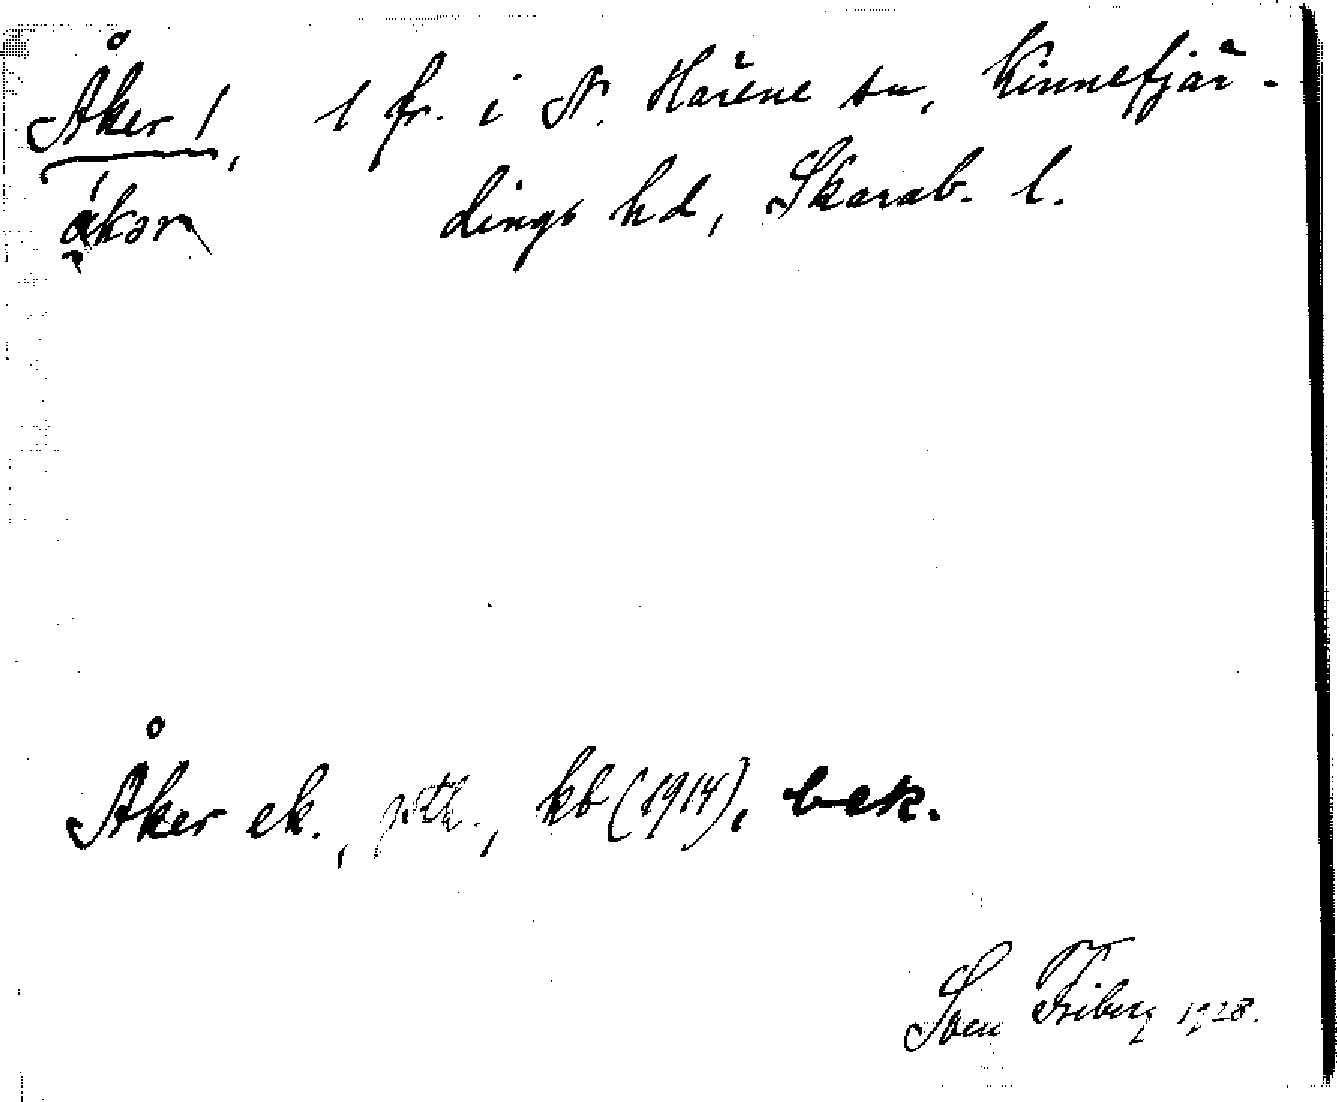 Åker /, 1 fr. i N. Härene sn, Kinnefjär-
åkər dings hd, Skarab. l.
Åker ek., jstk., kb (1914), bek.
Sven Friberg 1928.